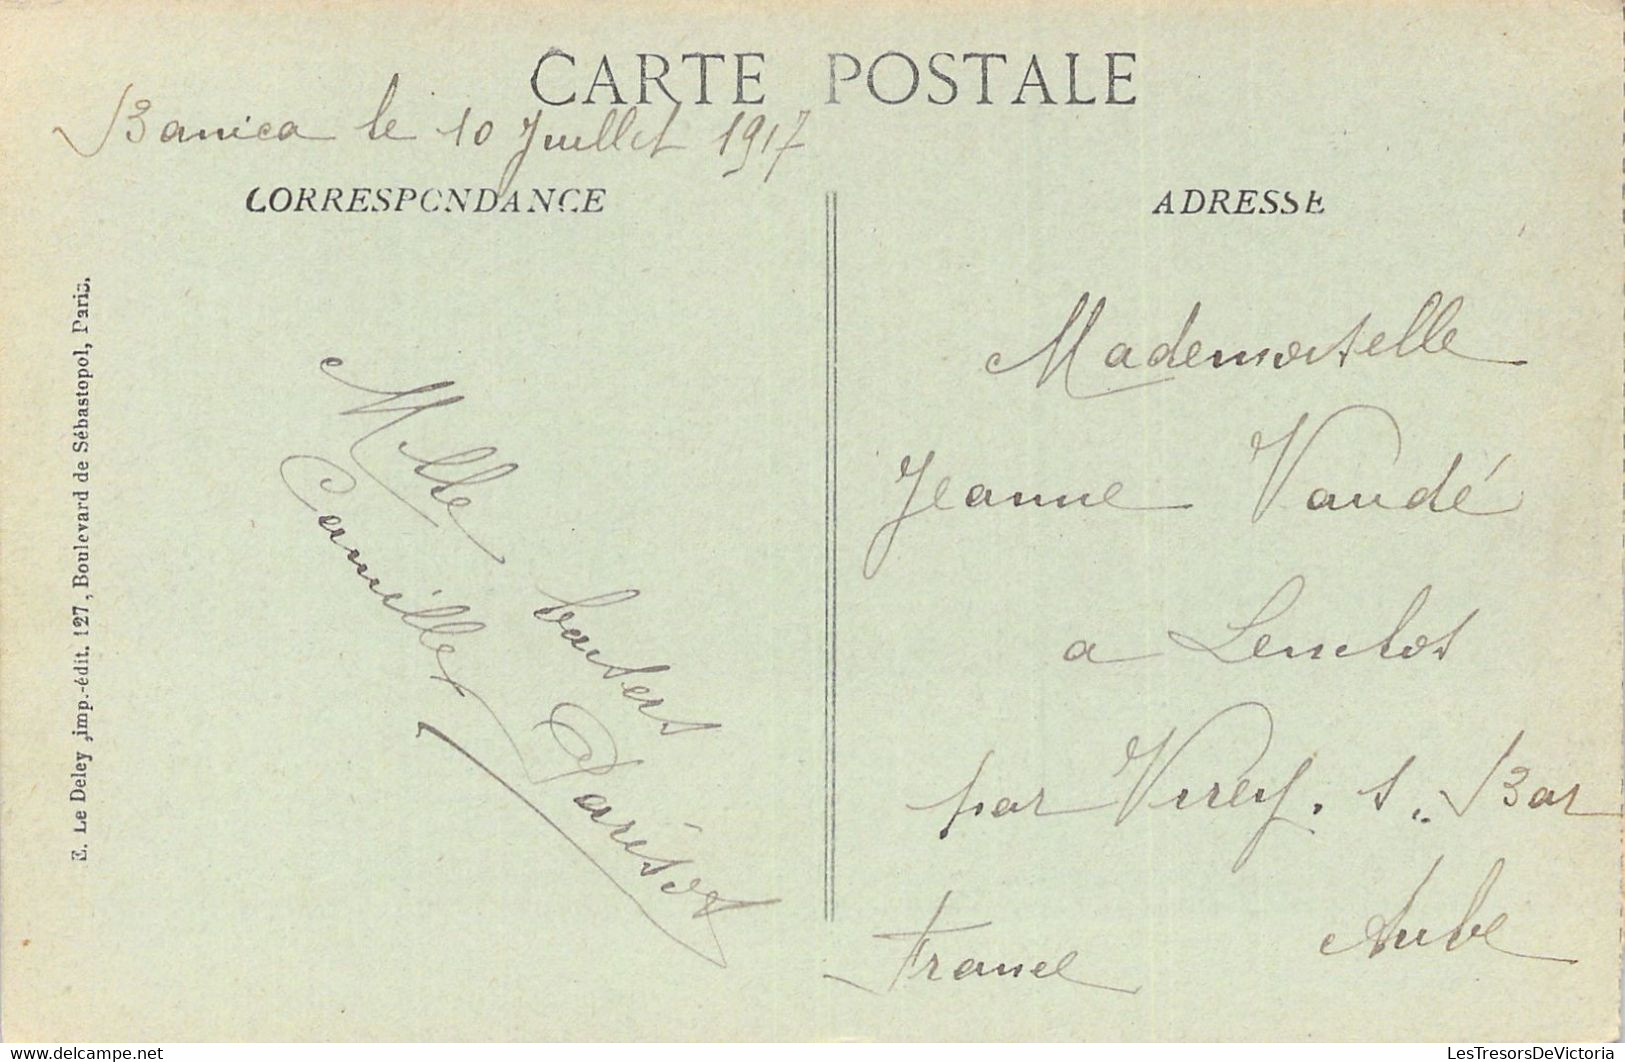 CARTE POSTALE
Banica le 10 Juillet 1917
CORRESPONDANCE
ADRESSE
E. Le Deley, imp.-édit. 127, Boulevard de Sébastopol, Paris.
Mlle baisers
Camille Parisot
Mademoiselle
Jeanne Vaudé
a Lenclos
par Virey. s. Bar
Aube
France
LesTresorsDeVictoria
www.delcampe.net